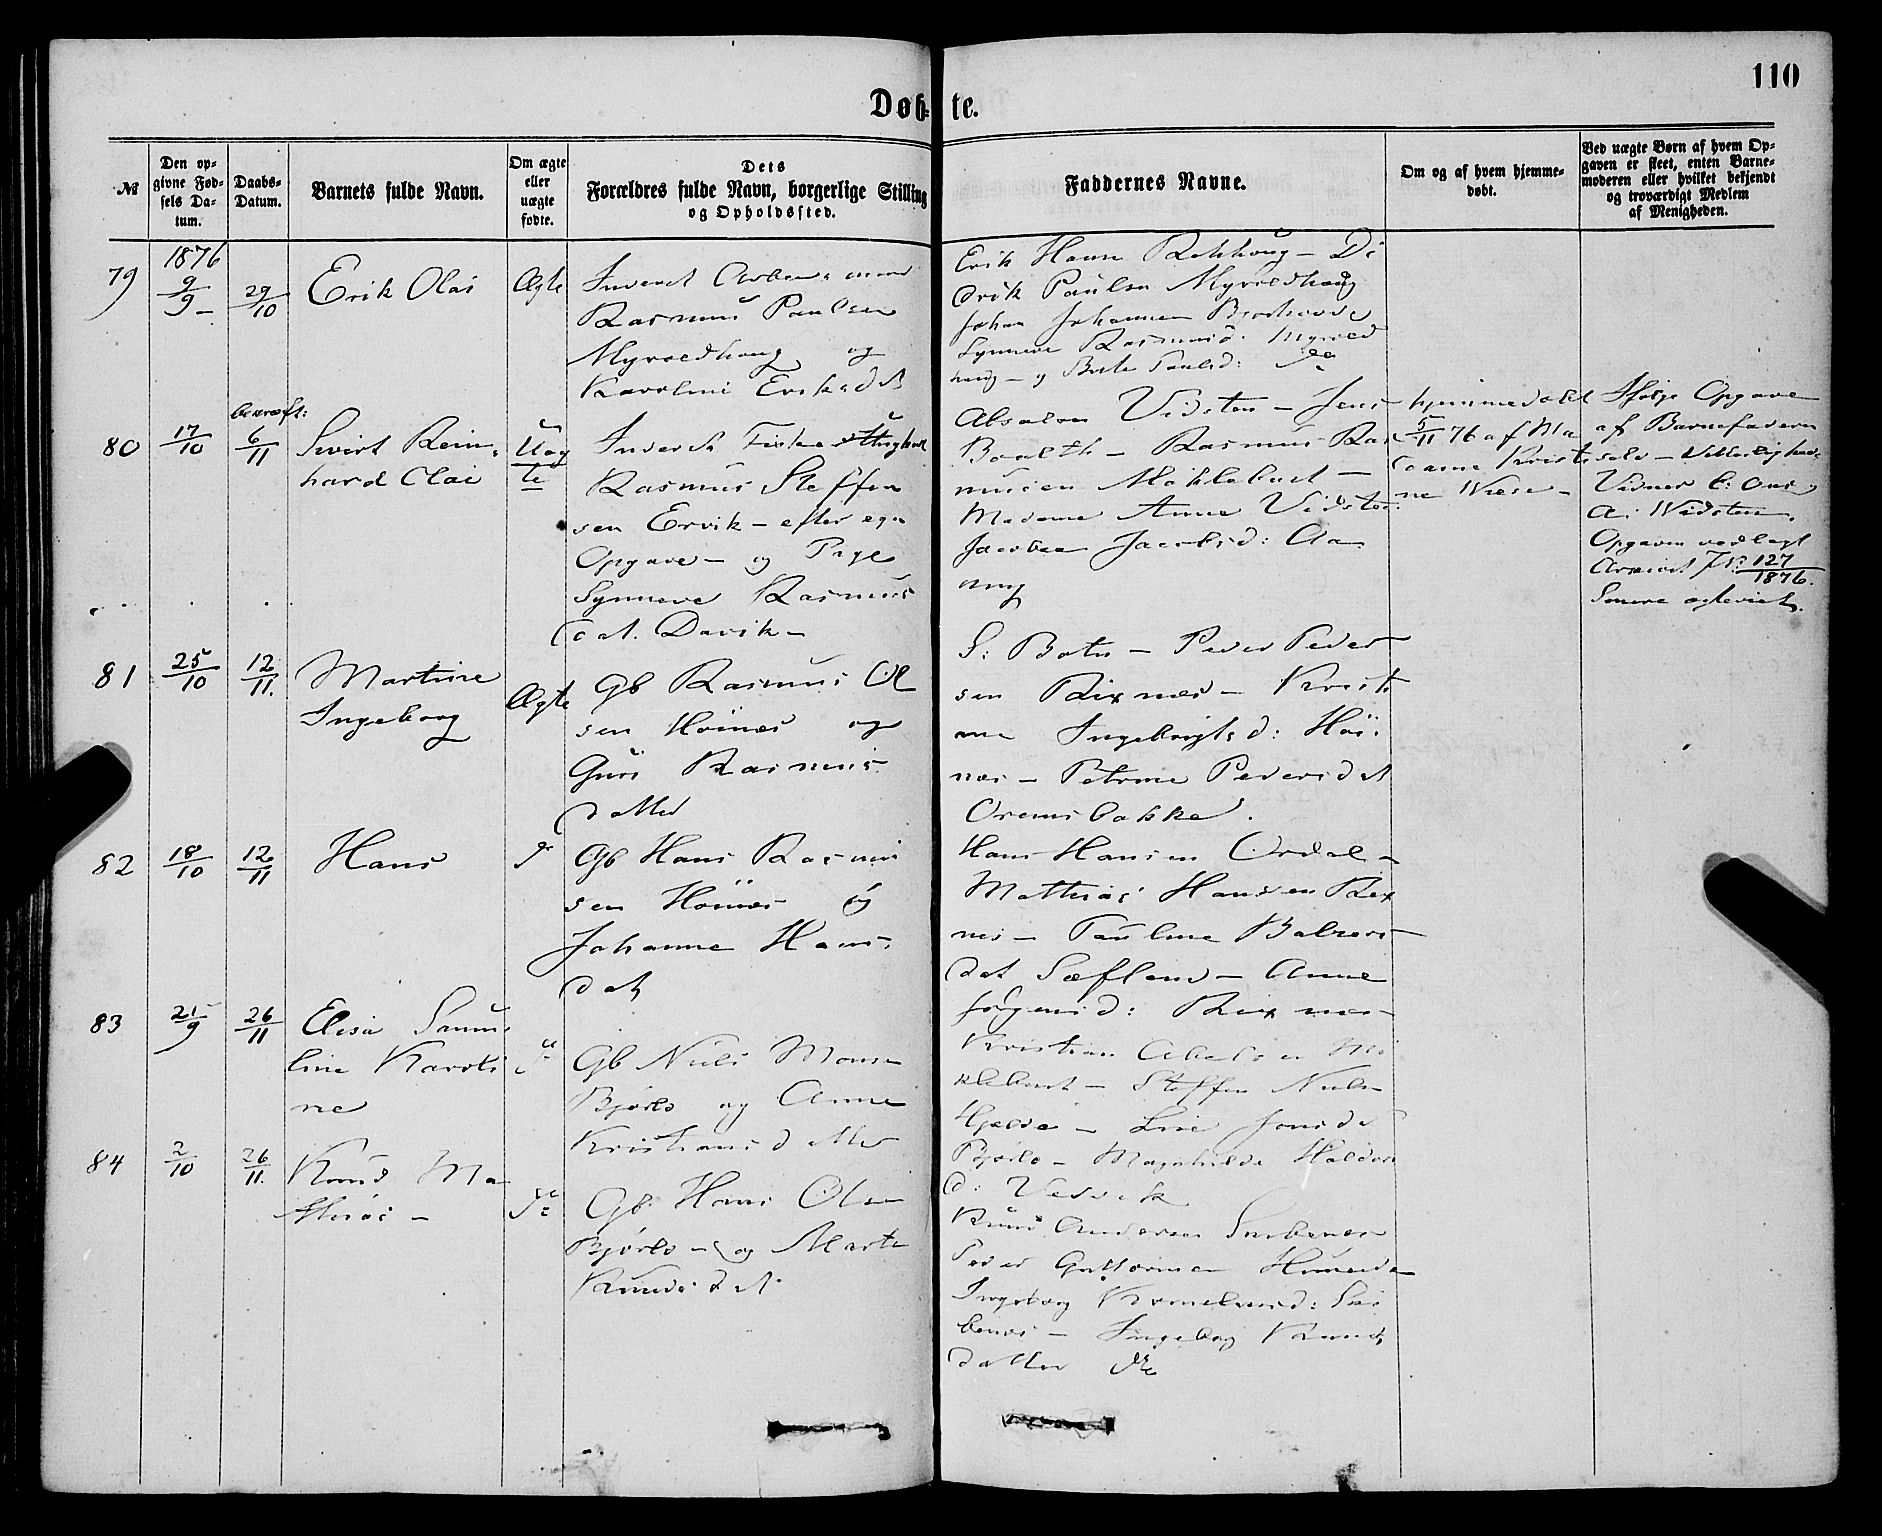 110
Døb- te.
№
Den op-
givne Fød-
sels Da-
tum.
Daabs-
Datum.
Barnets fulde Navn.
Om ægte
eller
uægte
fødte.
Dets
Forældres fulde Navn, borgerlige Stilling
og Opholdssted.
Faddernes Navne.
Om og af hvem hjemme-
døbt.
Ved uægte Børn af hvem Op-
gaven er skeet, enten Barne-
moderen eller hvilket bekjendt
og troværdigt Medlem
af Menigheden.
1876
79 9/9 – 29/10 Erik Olai Ægte
Inderst
Rasmus Paulsen
Myrvoldhaug og
Karoline Eriksdt
Erik Hansen – Di
drik Paulsen Myrvoldhaug
Johan Johannesen
Synneve Rasmusd: Myrvold
haug – og Berte Paulsd: do
80 17/10 bekræft: 6/11
Sivert Rein-
hard Olai
Uæg
te
Inderst Fisker
Rasmus Steffen
sen Ervik – efter egen
Opgave – og Pige
Synneve Rasmus
dat. Davik –
Absalon Vidsten – Jens
Rasmus Ras
musen Myklebust –
Madame Anne Vidsten
Jacobsd: Aa
hjemmedøbt
5/11 76 af Ma
dame Kristi
ne Wiese –
Ifølge Opgave
af Barnefaderen
selv –
Vidner
A: Widsten.
Opgaven vedlagt
Archivet 127/1876.
Senere ægteviet.
81 25/10 12/11.
Martine
Ingeborg
Ægte
Gb Rasmus Ol
sen Hóinæs og
Guri Rasmus
datter
S: Botn – Peder Peder
sen Rixnæs – Kristi
ne Ingebrigtsd: Hói-
næs – Petrine Pedersdt
Oremsbakke.
82 18/10 12/11 Hans do
Gb Hans Rasmus
sen Hóinæs og
Johanne Hans-
dat
Hans Hansen Ordal –
Mathias Hansen Rix
næs – Pauline
dat Sæfland – Anne
Jørgensd: Rixnæs –
83 21/9 26/11
Elisa Samu-
line Karoli
ne
do
Gb Niels Monsen
Bjørlo og Anne
Kristiansdatter
Kristian Abelsen My
klebust – Steffen Nielsen
Hjelle – Line Jonsdt
Bjørlo – Magnhilde Haldor
d:
84 2/10 26/11.
Knud Ma
thias –
do
Gb. Hans Olsen
Bjørlo – og Marte
Knudsdt
Knud Andersen
Peder Guttormsen
Ingeborg
– Ingeborg Knuds
datter do